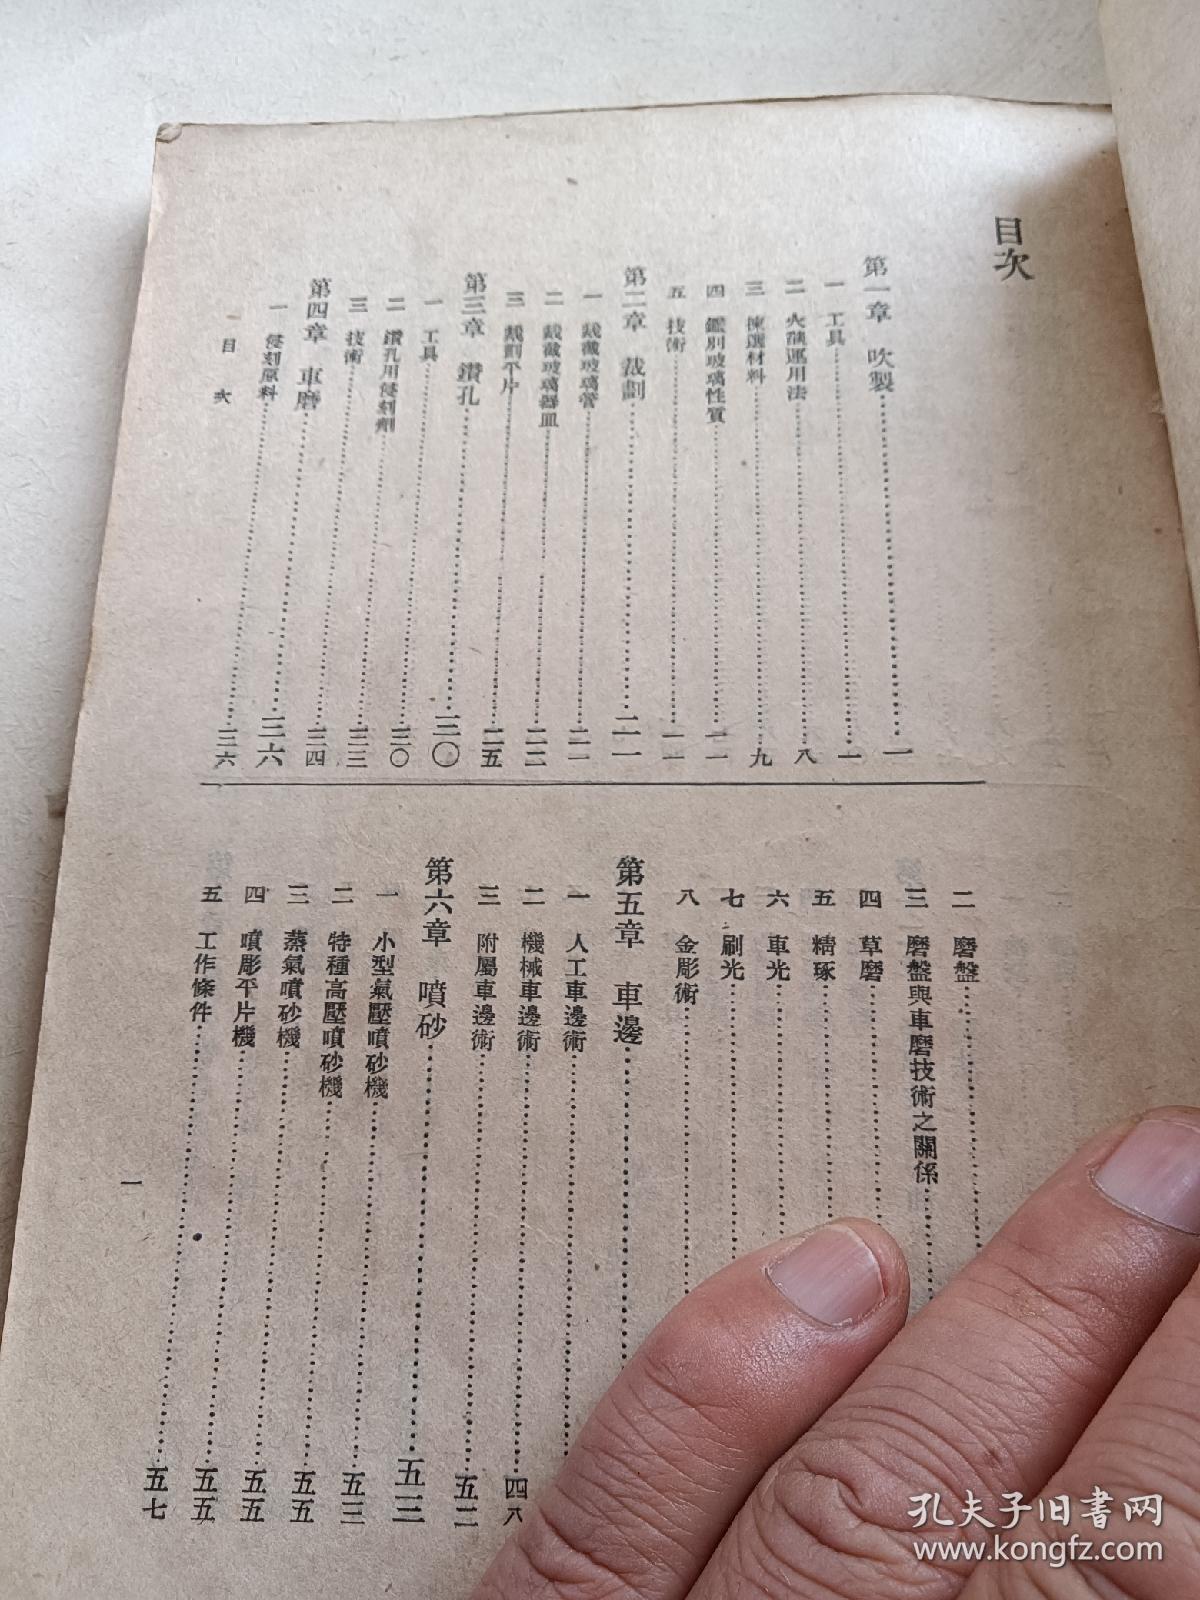 目次
第一章 吹製……一
一 工具……一
二 火頭運用法……八
三 揀選材料……九
四 鑑別玻璃性質……一一
五 技術……一一
第二章 裁劃……二一
一 裁截玻璃管……二一
二 裁截玻璃器皿……二二
三 裁劃平片……二五
第三章 鑽孔……三〇
一 工具……三〇
二 鑽孔用侵刻劑……三三
三 技術……三四
第四章 車磨……三六
一 侵刻原料……三六
目次
二 磨盤……
三 磨盤與車磨技術之關係……
四 草磨……
五 精琢……
六 車光……
七 刷光……
八 金彫術……
第五章 車邊……
一 人工車邊術……
二 機械車邊術……四八
三 附屬車邊術……五二
第六章 噴砂……五三
一 小型氣壓噴砂機……五三
二 特種高壓噴砂機……五五
三 蒸氣噴砂機……五五
四 噴彫平片機……五五
五 工作條件……五七
一
孔夫子旧书网
www.kongfz.com